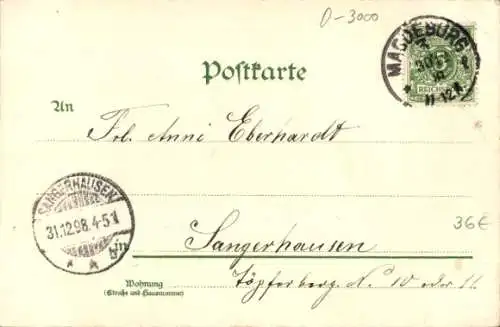 D-3000
MAGDEBURG
11-12N.
REICHSPOST
Postkarte
An
Frl. Anni Eberhardt
SANGERHAUSEN
31.12.98.4-5N
in
Sangerhausen
36€
Wohnung
(Straße und Hausnummer)
Töpferberg. No 10 oder 11.